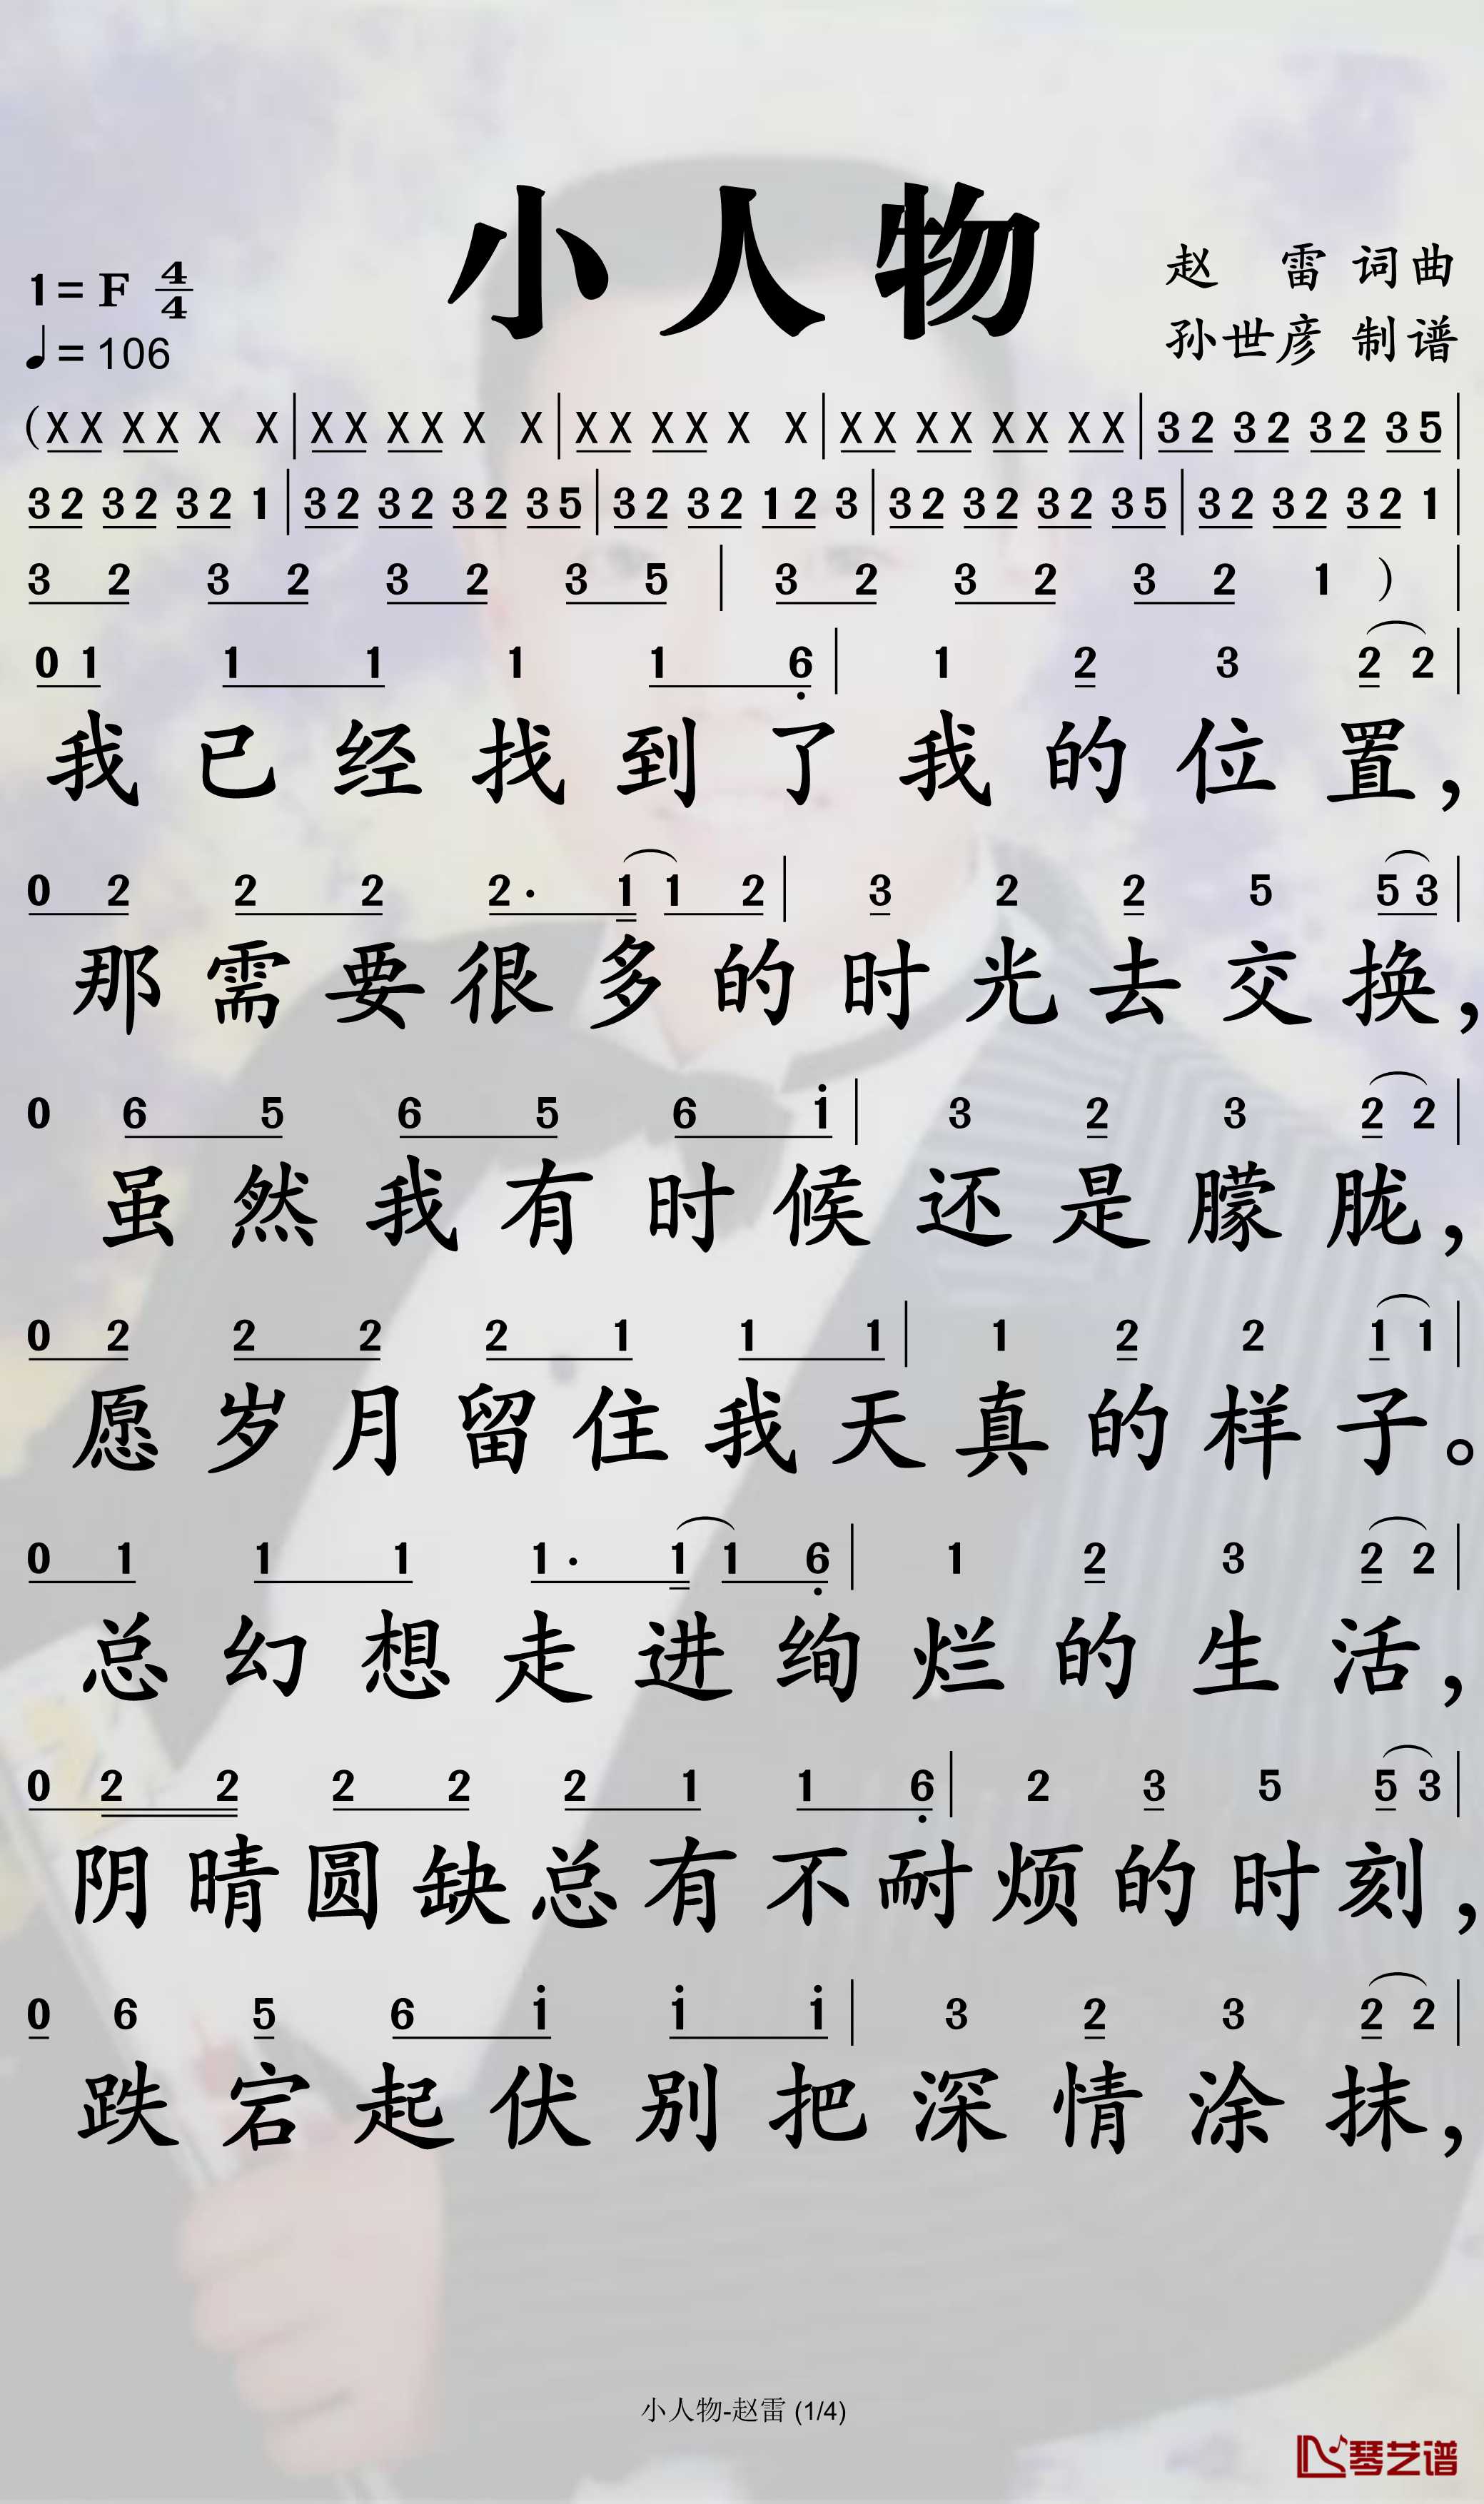 小人物
1=F 4/4
赵 雷 词曲
♩=106
孙世彦 制谱
(XX XX X X|XX XX X X|XX XX X X|XX XX XX XX|32 32 32 35|
32 32 32 1|32 32 32 35|32 32 12 3|32 32 32 35|32 32 32 1|
3 2 3 2 3 2 3 5|3 2 3 2 3 2 1)|
0 1 1 1 1 1 6̣|1 2 3 2 2|
我已经找到了我的位置,
0 2 2 2 2· 1 1 2|3 2 2 5 5 3|
那需要很多的时光去交换,
0 6 5 6 5 6 i|3 2 3 2 2|
虽然我有时候还是朦胧,
0 2 2 2 2 1 1 1|1 2 2 1 1|
愿岁月留住我天真的样子。
0 1 1 1 1· 1 1 6̣|1 2 3 2 2|
总幻想走进绚烂的生活,
0 2 2 2 2 2 1 1 6̣|2 3 5 5 3|
阴晴圆缺总有不耐烦的时刻,
0 6 5 6 i i i|3 2 3 2 2|
跌宕起伏别把深情涂抹,
小人物-赵雷 (1/4)
琴艺谱